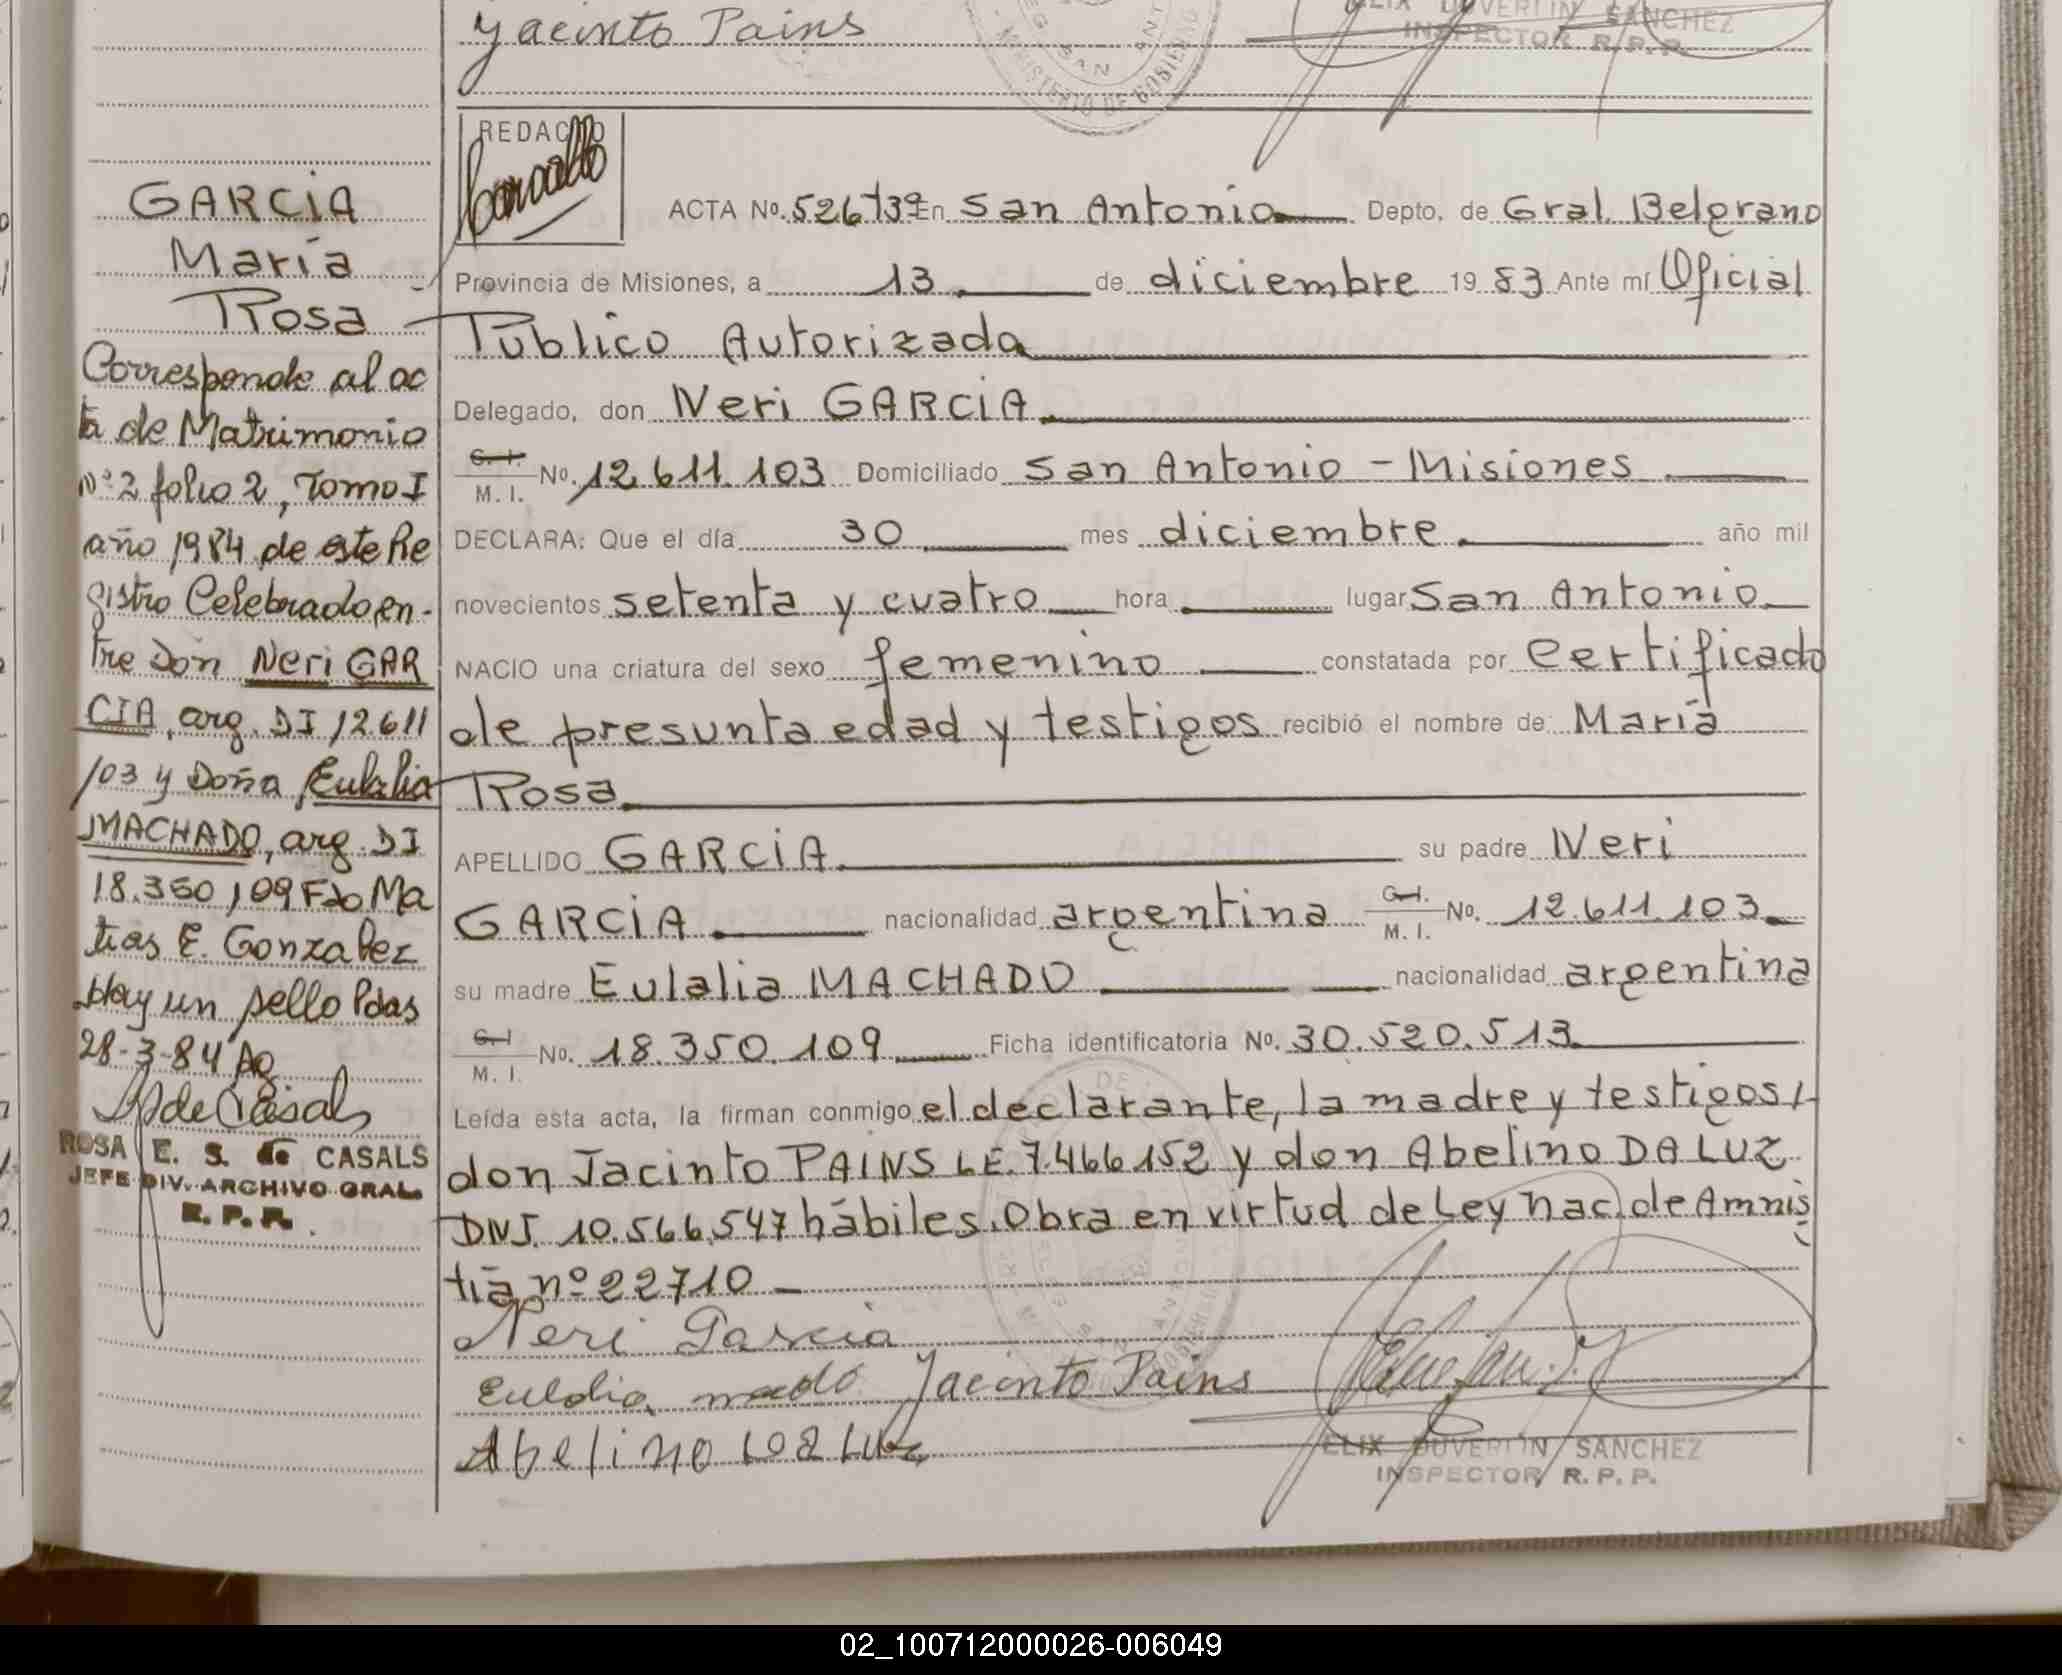 Jacinto Pains
FELIX DUVERLIN SANCHEZ
INSPECTOR R. P. P.
MINISTERIO DE GOBIERNO
GARCIA
María
Rosa
Corresponde al ac
ta de Matrimonio
Nº 2 folio 2, Tomo I
año 1984 de este Re
gistro Celebrado en-
tre Don Neri GAR
CIA, arg. DI 12.611
103 y Doña Eulalia
MACHADO, arg. DI
18.350,109 Fdo Ma
tias E. Gonzalez
Hay un sello Pdas
28-3-84 Ag
ROSA E. S. de CASALS
JEFE DIV. ARCHIVO GRAL.
R. P. P.
REDACTO
ACTA No. 526 Tº 3º En San Antonio Depto. de Gral. Belgrano
Provincia de Misiones, a 13 de diciembre 19 83 Ante mí Oficial
Público Autorizada
Delegado, don Neri GARCIA
C. I. M. I. No. 12.611.103 Domiciliado San Antonio - Misiones
DECLARA: Que el día 30 mes diciembre año mil
novecientos setenta y cuatro hora lugar San Antonio
NACIO una criatura del sexo femenino constatada por Certificado
de presunta edad y testigos recibió el nombre de: María
Rosa
APELLIDO GARCIA su padre Neri
GARCIA nacionalidad argentina C. I. M. I. No. 12.611.103
su madre Eulalia MACHADO nacionalidad argentina
C. I. M. I. No. 18.350.109 Ficha identificatoria No. 30.520.513
Leída esta acta, la firman conmigo el declarante, la madre y testigos
don Jacinto PAINS L.E. 7.466.152 y don Abelino DA LUZ
DNI. 10.566.547 hábiles. Obra en virtud de Ley nac. de Amnis
tía nº 22710
Neri Garcia
Jacinto Pains
Abelino
FELIX DUVERLIN SANCHEZ
INSPECTOR R. P. P.
02_100712000026-006049